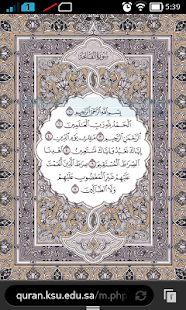 5:39
سورة الفاتحة
بسم الله الرحمن الرحيم
الحمد لله رب العالمين
الرحمن الرحيم ملك يوم الدين
إياك نعبد وإياك نستعين اهدنا
الصراط المستقيم صراط الذين أنعمت
عليهم غير المغضوب عليهم
ولا الضالين
quran.ksu.edu.sa/m.php